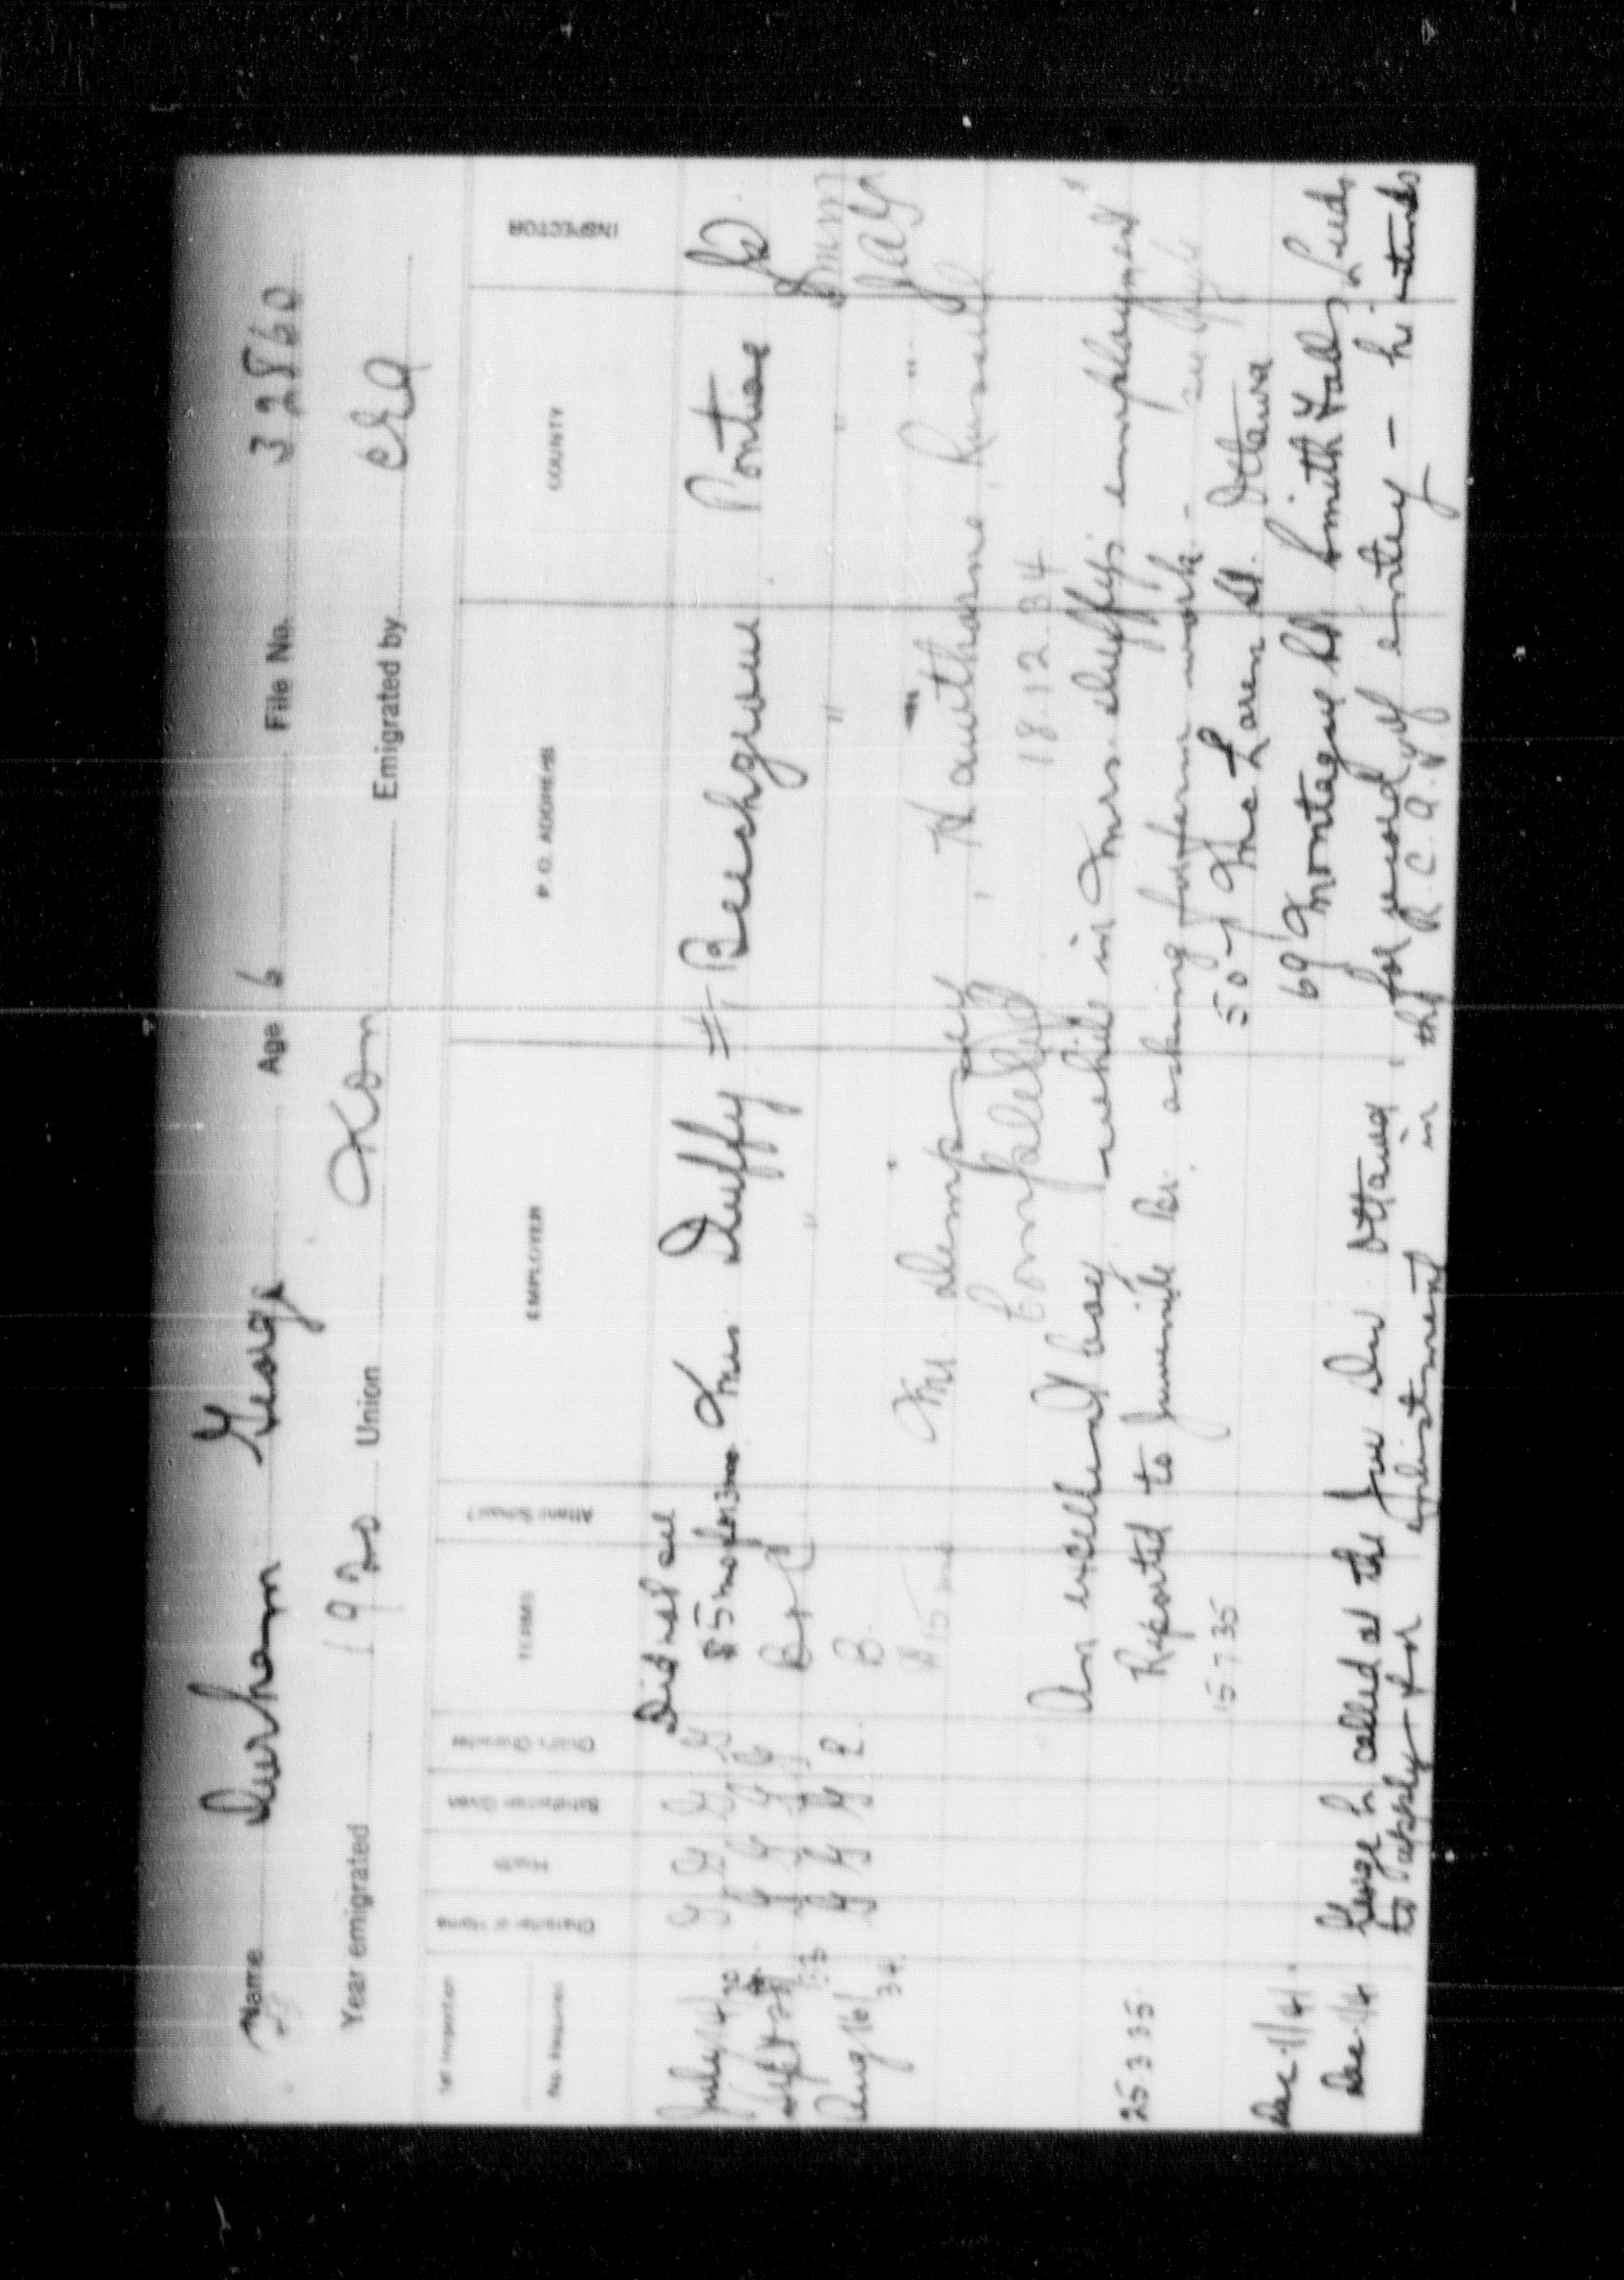 Name Durham George Age 6 File No. 32860
Year emigrated 1920 Union Oxon Emigrated by
1st Inspection
No. Required
Character of Home
Health
Child's Character
TERMS
Attend School?
EMPLOYER
P.O. ADDRESS
COUNTY
INSPECTOR
Did not see
July 14/ G G G G $5 mo for 3 mos Mrs Duffy # Beechgrove Pontiac
Sept B + C " " "
Aug 16/34 B.
$15 mo Mr. Dempsey, Hawthorne, Russell
Completed 18.12.34
An excellent boy while in Mrs. Duffys employment
25 3 35 Reported to Juvenile Br. asking for farm work -
15 7 35 507 McLaren St. Ottawa
Dec 1/41 69 Montague St Smith Falls, Leeds
Dec 1/41 George D. called at the Juv Div Ottawa, for record of entry - he intends
to apply for enlistment in the R.C.A.F